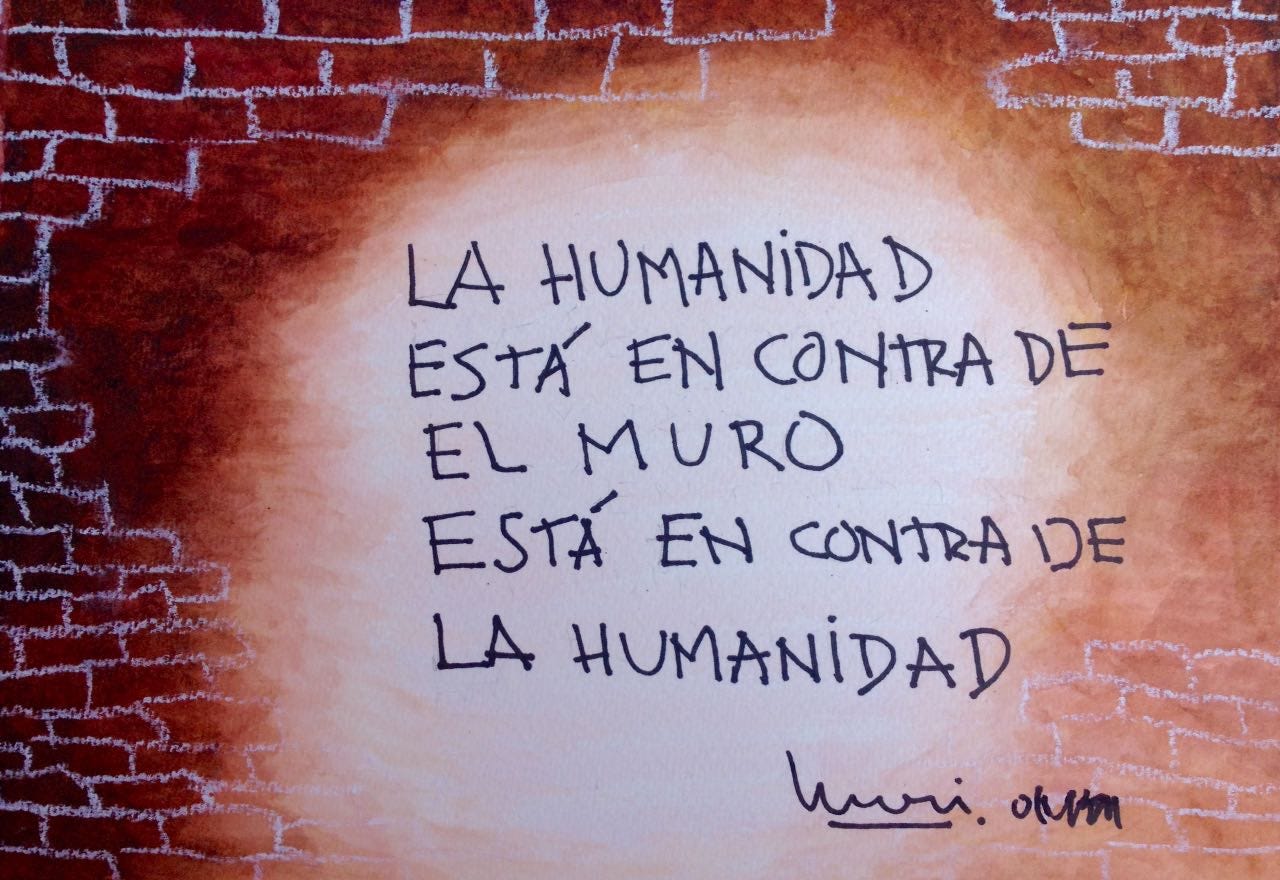 LA HUMANIDAD
ESTÁ EN CONTRA DE
EL MURO
ESTÁ EN CONTRA DE
LA HUMANIDAD